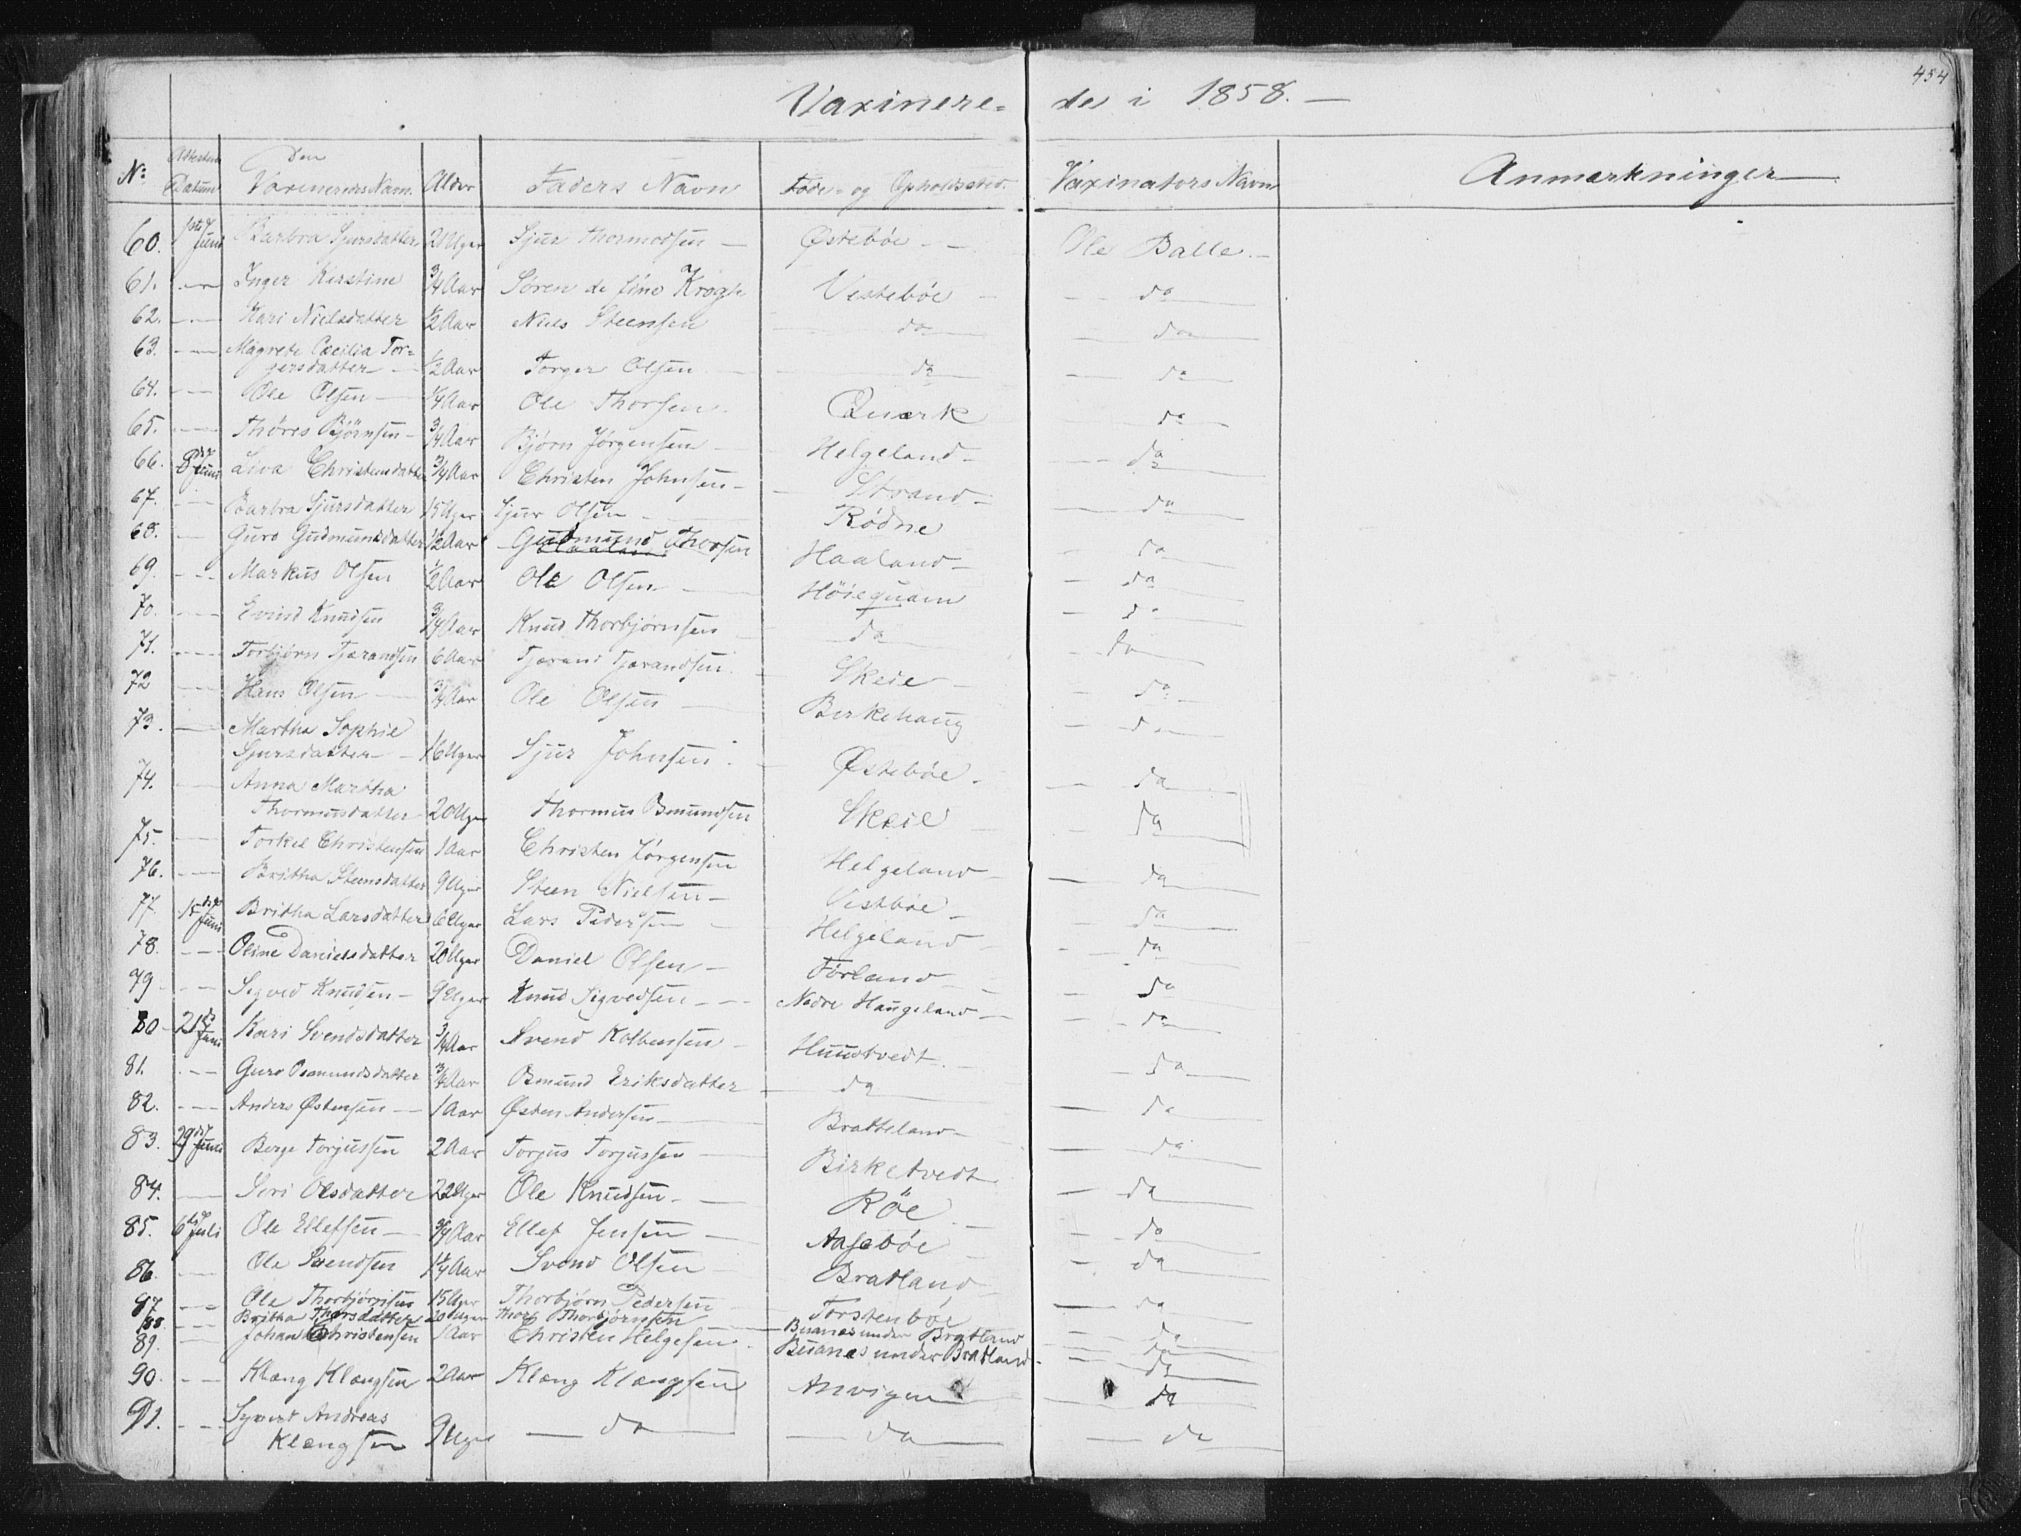 454
Vaxinere= de i 1858. —
No. Attestens Datum Den Vaxineredes Navn. Alder Faders Navn Føde- og Opholdssted. Vaxinators Navn Anmærkninger —
60. 1ste Juni Barbra Sjursdatter 20 Uger Sjur Thormodsen — Østebøe — — Ole Balle. —
61. — Inger Kirstine 3/4 Aar Søren de fine Krogh Vestebøe — — do
62. — Kari Nielsdatter 1/2 Aar Niels Steensen do — do
63. — Magrete Cæcilia Tor=
gersdatter — 1/2 Aar Torger Olsen do — do
64. — Ole Olsen — 1/4 Aar Ole Thorsen. Qværk — do
65. — Thøres Bjørnsen — 3/4 Aar Bjørn Jørgensen — Helgeland — — do
66. 8de Juni Liva Christensdatter 3/4 Aar Christen Johnsen — Strand — — do
67. — Barbra Sjursdatter 15 Uger Sjur Olsen — Rødne do
68. — Guro Gudmundsdatter 1/2 Aar Gudmund Thorsen Haaland — — do
69. — Markus Olsen 1/2 Aar Ole Olsen — Høiequam — do
70. — Eivind Knudsen 3/4 Aar Knud Thorbjørnsen do — do
71. — Torbjørn Tjærandsen 6 Aar Tjærand Tjærandsen. Skeie — — do
72 — Hans Olsen — 3/4 Aar Ole Olsen — Birkehaug — do
73. — Martha Sophie
Sjursdatter — 16 Uger Sjur Johnsen. Østebøe — — do
74. — Anna Martha
Thormusdatter 20 Uger Thormus Osmundsen Skeie — do
75. — Torkel Christensen 1 Aar Christen Jørgensen Helgeland — — do
76. — Britha Steensdatter 9 Uger Steen Nielsen — Vestbøe — — do
77. 15de Juni Britha Larsdatter 6 Uger Lars Pedersen — Helgeland — — do
78. — Oline Danielsdatter 20 Uger Daniel Olsen — Førland — — do
79 — Sigved Knudsen — 9 Uger Knud Sigvedsen — — Nedre Haugeland — — do
80 — 21de Juni Kari Svendsdatter 3/4 Aar Svend Kolbensen — Huustvedt. — do
81. — Guro Osmundsdatter 3/4 Aar Osmund Eriksdatter do — do
82. — Anders Østensen — 1 Aar Østen Andersen — Bratteland — — do
83. 29de Juni Berge Torjussen 2 Aar Torjus Torjussen — Birketvedt — do
84. — Siri Olsdatter 22 Uger Ole Knudsen. — Røe — — do
85. 6te Juli Ole Ellefsen — 3/4 Aar Ellef Jensen — Aasebøe — do
86. — Ole Svendsen 1/4 Aar Svend Olsen — Bratland — — do
87. — Ole Thorbjørnsen 15 Uger Thorbjørn Pedersen Torstenbøe do
88. — Britha Thorsdatter 20 Uger Thore Thorbjørnsen Buanes under Bratland — do
89. — Johan Christensen 1 Aar Christen Helgesen. Buanes under Bratland — do
90. — Klæng Klængsen 2 Aar Klæng Klængsen Anvigen — do
91. — Syvert Andreas
Klængsen 9 Uger — do — do — do